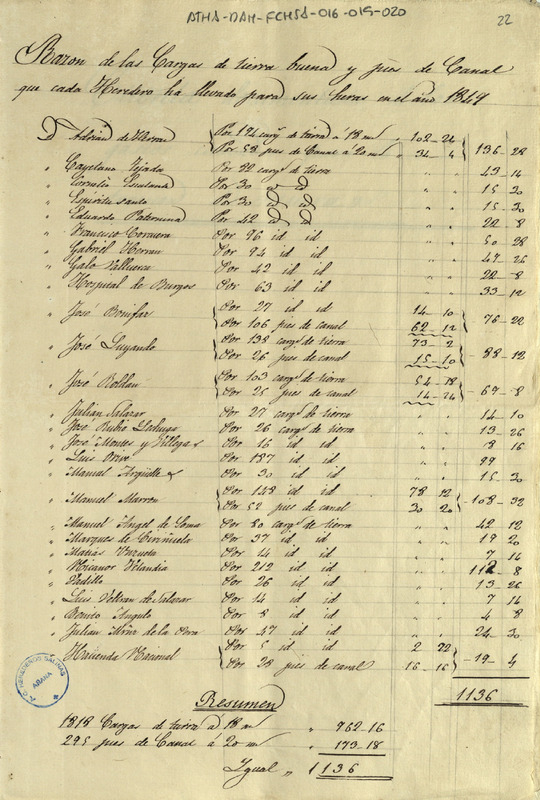 ATHA-DAH-FCHSA-016-019-020
22
Razon de las Cargas de tierra buena y pies de Canal
que cada Heredero ha llevado para sus heras en el año 1849
D. Adrian de Herran Por 194 carg.s de tierra á 18 m.s 102-24
Por 58 pies de Canal á 20 m.s 34-4 136-28
" Cayetano Tejada Por 82 carg.s de tierra " " 43-14
" Por 30 id id " " 15-30
" Espiritu santo Por 30 id id " " 15-30
" Eduardo Paternina Por 42 id id " " 22-8
" Francisco Corcuera Por 96 id id " " 50-28
" Gabriel Herran Por 94 id id " " 47-26
" Galo Valluerca Por 42 id id " " 22-8
" Hospital de Burgos Por 63 id id " " 33-12
" José Bonifaz Por 27 id id 14-10
Por 106 pies de canal 62-12 76-22
" José Luyando Por 138 carg.s de tierra 73-2
Por 26 pies de canal 15-10 88-12
" José Roldan Por 103 carg.s de tierra 54-18
Por 25 pies de canal 14-24 69-8
" Julian Salazar Por 27 carg.s de tierra " " 14-10
" Jose Rubio Por 26 carg.s de tierra " " 13-26
" José Montes y Villegas Por 16 id id " " 8 16
" Luis Por 187 id id " " 99
" Manuel Argüelles Por 30 id id " " 15-30
" Manuel Marron Por 148 id id 78 12
Por 52 pies de canal 30 20 -108-32
" Manuel Angel de Por 80 carg.s de tierra " " 42 12
" Marques de Por 37 id id " " 19 20
" Matias Por 14 id id " " 7 14
" Nicanor Velandia Por 212 id id " " 112 8
" Padilla Por 26 id id " " 13-26
" Luis Beltran de Salazar Por 14 id id " " 7 14
" Benito Angulo Por 8 id id " " 4 8
" Julian de la Por 47 id id " " 24-30
" Hacienda Nacional Por 5 id id 2 22
Por 28 pies de canal 16-16 -19-4
1136
Resumen
1818 Cargas de tierra á 18 m.s " 962-16
295 pies de Canal á 20 m.s " 173-18
Ygual " 1136
A.C. HEREDEROS SALINAS
AÑANA